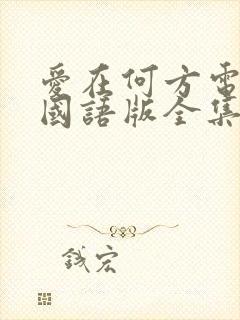 愛在何方電
國語版全集
錢宏